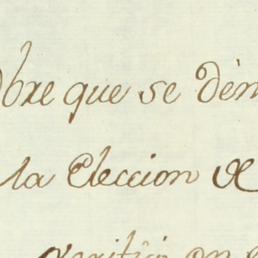 obre que se den
la Eleccion de